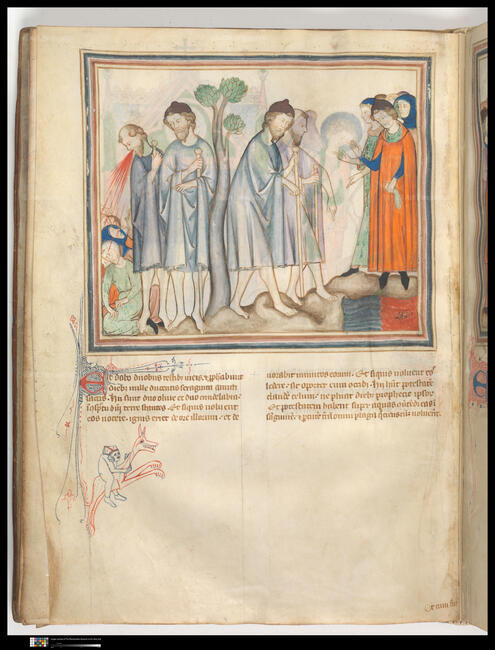 Et dabo duobus testib; meis, et prophabunt
dieb; mille ducentis sexaginta amicti
saccis. Hii sunt due oliue et duo candelabra
in conspectu dni terre stantes. Et siquis uoluerit
eos nocere, ignis exiet de ore illorum, et de
uorabit inimicos eorum. Et siquis uoluerit eos
ledere, sic oportet eum occidi. Hii habent potestatem
claudendi celum, ne pluat dieb; prophetie ipsorum.
Et potestatem habent super aquas
sanguinem, et uoluerint.